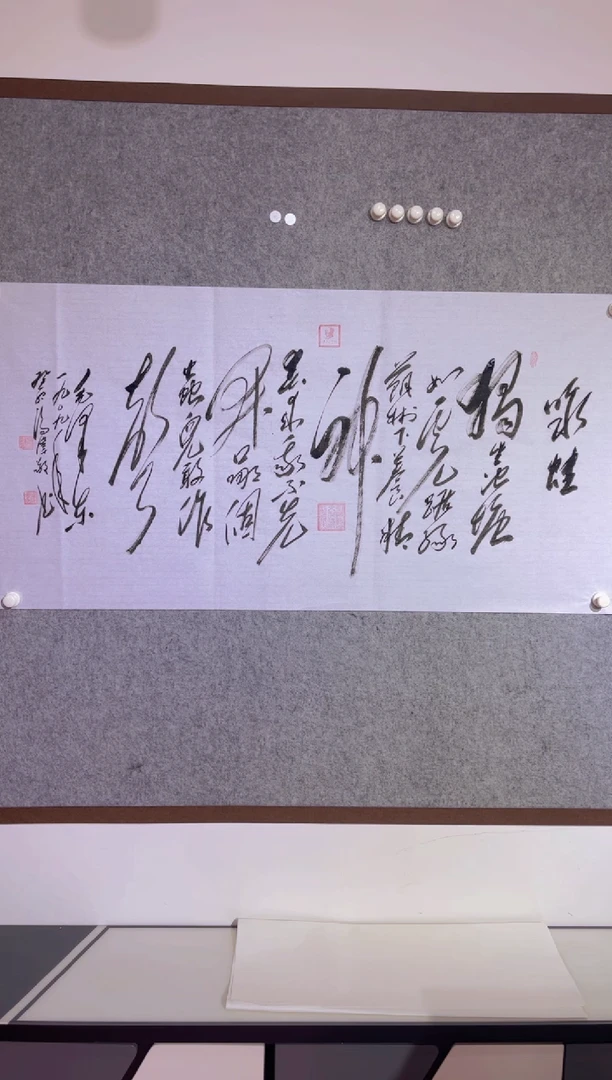 咏蛙
獨坐池塘
如虎踞綠
蔭樹下養精
神
春來我不先
開口哪個
蟲兒敢作
聲
毛澤東
一九〇九年